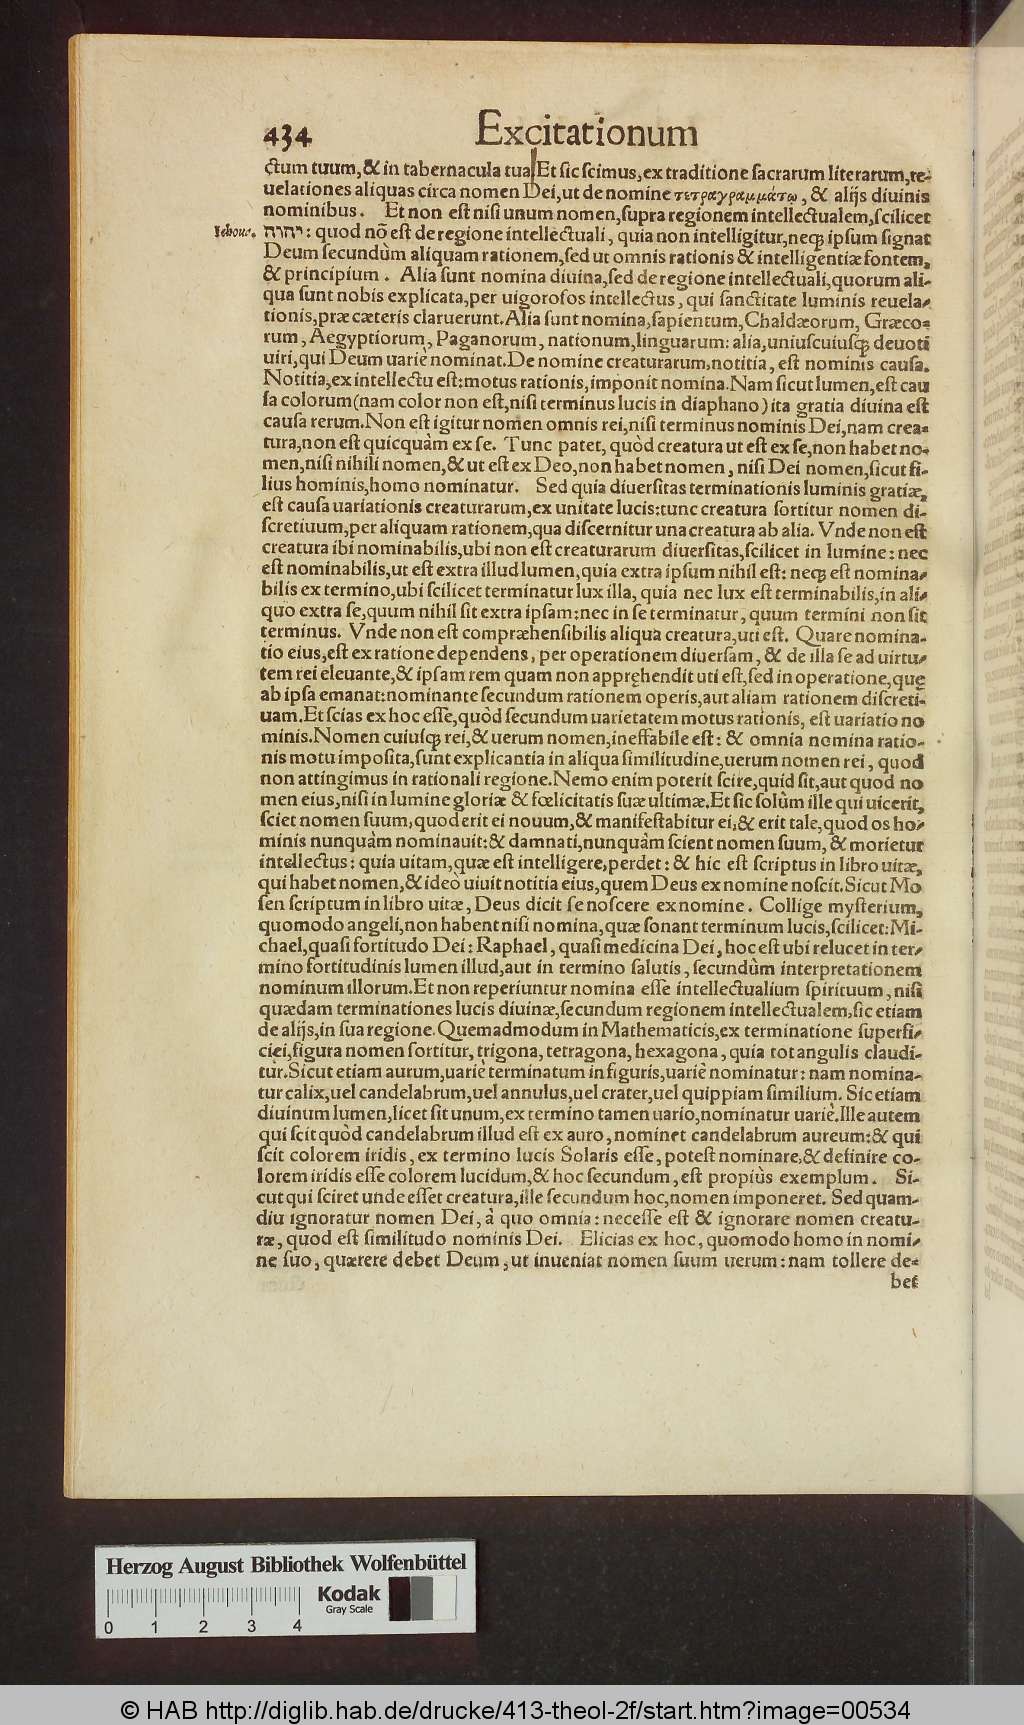 434 Excitationum
ctum tuum, & in tabernacula tua. Et sic scimus, ex traditione sacrarum literarum, re-
uelationes aliquas circa nomen Dei, ut de nomine τετραγραμμάτῳ, & alijs diuinis
nominibus. Et non est nisi unum nomen, supra regionem intellectualem, scilicet
Iehoua.
יהוה: quod nō est de regione intellectuali, quia non intelligitur, neqꝫ ipsum signat
Deum secundùm aliquam rationem, sed ut omnis rationis & intelligentiæ fontem,
& principium. Alia sunt nomina diuina, sed de regione intellectuali, quorum ali-
qua sunt nobis explicata, per uigorosos intellectus, qui sanctitate luminis reuela-
tionis, præ cæteris claruerunt. Alia sunt nomina, sapientum, Chaldæorum, Græco-
rum, Aegyptiorum, Paganorum, nationum, linguarum: alia, uniuscuiusqꝫ deuoti
uiri, qui Deum uariè nominat. De nomine creaturarum, notitia, est nominis causa.
Notitia, ex intellectu est: motus rationis, imponit nomina. Nam sicut lumen, est cau
sa colorum (nam color non est, nisi terminus lucis in diaphano) ita gratia diuina est
causa rerum. Non est igitur nomen omnis rei, nisi terminus nominis Dei, nam crea-
tura, non est quicquàm ex se. Tunc patet, quòd creatura ut est ex se, non habet no-
men, nisi nihili nomen, & ut est ex Deo, non habet nomen, nisi Dei nomen, sicut fi-
lius hominis, homo nominatur. Sed quia diuersitas terminationis luminis gratiæ,
est causa uariationis creaturarum, ex unitate lucis: tunc creatura sortitur nomen di-
scretiuum, per aliquam rationem, qua discernitur una creatura ab alia. Vnde non est
creatura ibi nominabilis, ubi non est creaturarum diuersitas, scilicet in lumine: nec
est nominabilis, ut est extra illud lumen, quia extra ipsum nihil est: neqꝫ est nomina-
bilis ex termino, ubi scilicet terminatur lux illa, quia nec lux est terminabilis, in ali-
quo extra se, quum nihil sit extra ipsam: nec in se terminatur, quum termini non sit
terminus. Vnde non est compræhensibilis aliqua creatura, uti est. Quare nomina-
tio eius, est ex ratione dependens, per operationem diuersam, & de illa se ad uirtu-
tem rei eleuante, & ipsam rem quam non appręhendit uti est, sed in operatione, quę
ab ipsa emanat: nominante secundum rationem operis, aut aliam rationem discreti-
uam. Et scias ex hoc esse, quòd secundum uarietatem motus rationis, est uariatio no
minis. Nomen cuiusqꝫ rei, & uerum nomen, ineffabile est: & omnia nomina ratio-
nis motu imposita, sunt explicantia in aliqua similitudine, uerum nomen rei, quod
non attingimus in rationali regione. Nemo enim poterit scire, quid sit, aut quod no
men eius, nisi in lumine gloriæ & fœlicitatis suæ ultimæ. Et sic solùm ille qui uicerit,
sciet nomen suum, quod erit ei nouum, & manifestabitur ei, & erit tale, quod os ho-
minis nunquàm nominauit: & damnati, nunquàm scient nomen suum, & morietur
intellectus: quia uitam, quæ est intelligere, perdet: & hic est scriptus in libro uitæ,
qui habet nomen, & ideò uiuit notitia eius, quem Deus ex nomine noscit. Sicut Mo
sen scriptum in libro uitæ, Deus dicit se noscere ex nomine. Collige mysterium,
quomodo angeli, non habent nisi nomina, quæ sonant terminum lucis, scilicet: Mi-
chael, quasi fortitudo Dei: Raphael, quasi medicina Dei, hoc est ubi relucet in ter-
mino fortitudinis lumen illud, aut in termino salutis, secundùm interpretationem
nominum illorum. Et non reperiuntur nomina esse intellectualium spirituum, nisi
quædam terminationes lucis diuinæ, secundum regionem intellectualem, sic etiam
de alijs, in sua regione. Quemadmodum in Mathematicis, ex terminatione superfi-
ciei, figura nomen sortitur, trigona, tetragona, hexagona, quia tot angulis claudi-
tur. Sicut etiam aurum, uariè terminatum in figuris, uariè nominatur: nam nomina-
tur calix, uel candelabrum, uel annulus, uel crater, uel quippiam similium. Sic etiam
diuinum lumen, licet sit unum, ex termino tamen uario, nominatur uariè. Ille autem
qui scit quòd candelabrum illud est ex auro, nominet candelabrum aureum: & qui
scit colorem iridis, ex termino lucis Solaris esse, potest nominare, & definire co-
lorem iridis esse colorem lucidum, & hoc secundum, est propiùs exemplum. Si-
cut qui sciret unde esset creatura, ille secundum hoc, nomen imponeret. Sed quam-
diu ignoratur nomen Dei, à quo omnia: necesse est & ignorare nomen creatu-
ræ, quod est similitudo nominis Dei. Elicias ex hoc, quomodo homo in nomi-
ne suo, quærere debet Deum, ut inueniat nomen suum uerum: nam tollere de-
bet
Herzog August Bibliothek Wolfenbüttel
Kodak
Gray Scale
0 1 2 3 4
© HAB http://diglib.hab.de/drucke/413-theol-2f/start.htm?image=00534